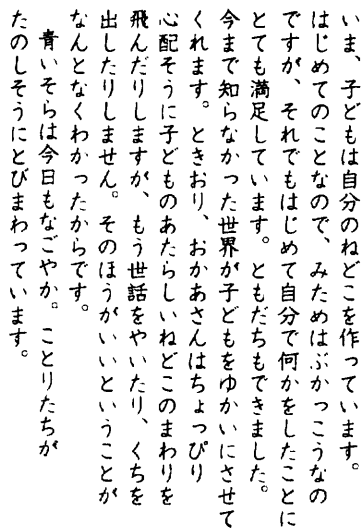 いま、子どもは自分のねどこを作っています。
はじめてのことなので、みためはぶかっこうなの
ですが、それでもはじめて自分で何かをしたことに
とても満足しています。ともだちもできました。
今まで知らなかった世界が子どもをゆかいにさせて
くれます。ときおり、おかあさんはちょっぴり
心配そうに子どものあたらしいねどこのまわりを
飛んだりしますが、もう世話をやいたり、くちを
出したりしません。そのほうがいいということが
なんとなくわかったからです。
青いそらは今日もなごやか。ことりたちが
たのしそうにとびまわっています。